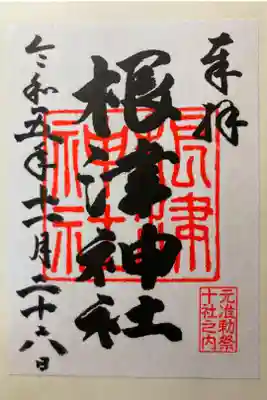 奉拝
根津神社
根津
神社
元准勅祭
十社之内
令和五年十一月二十六日